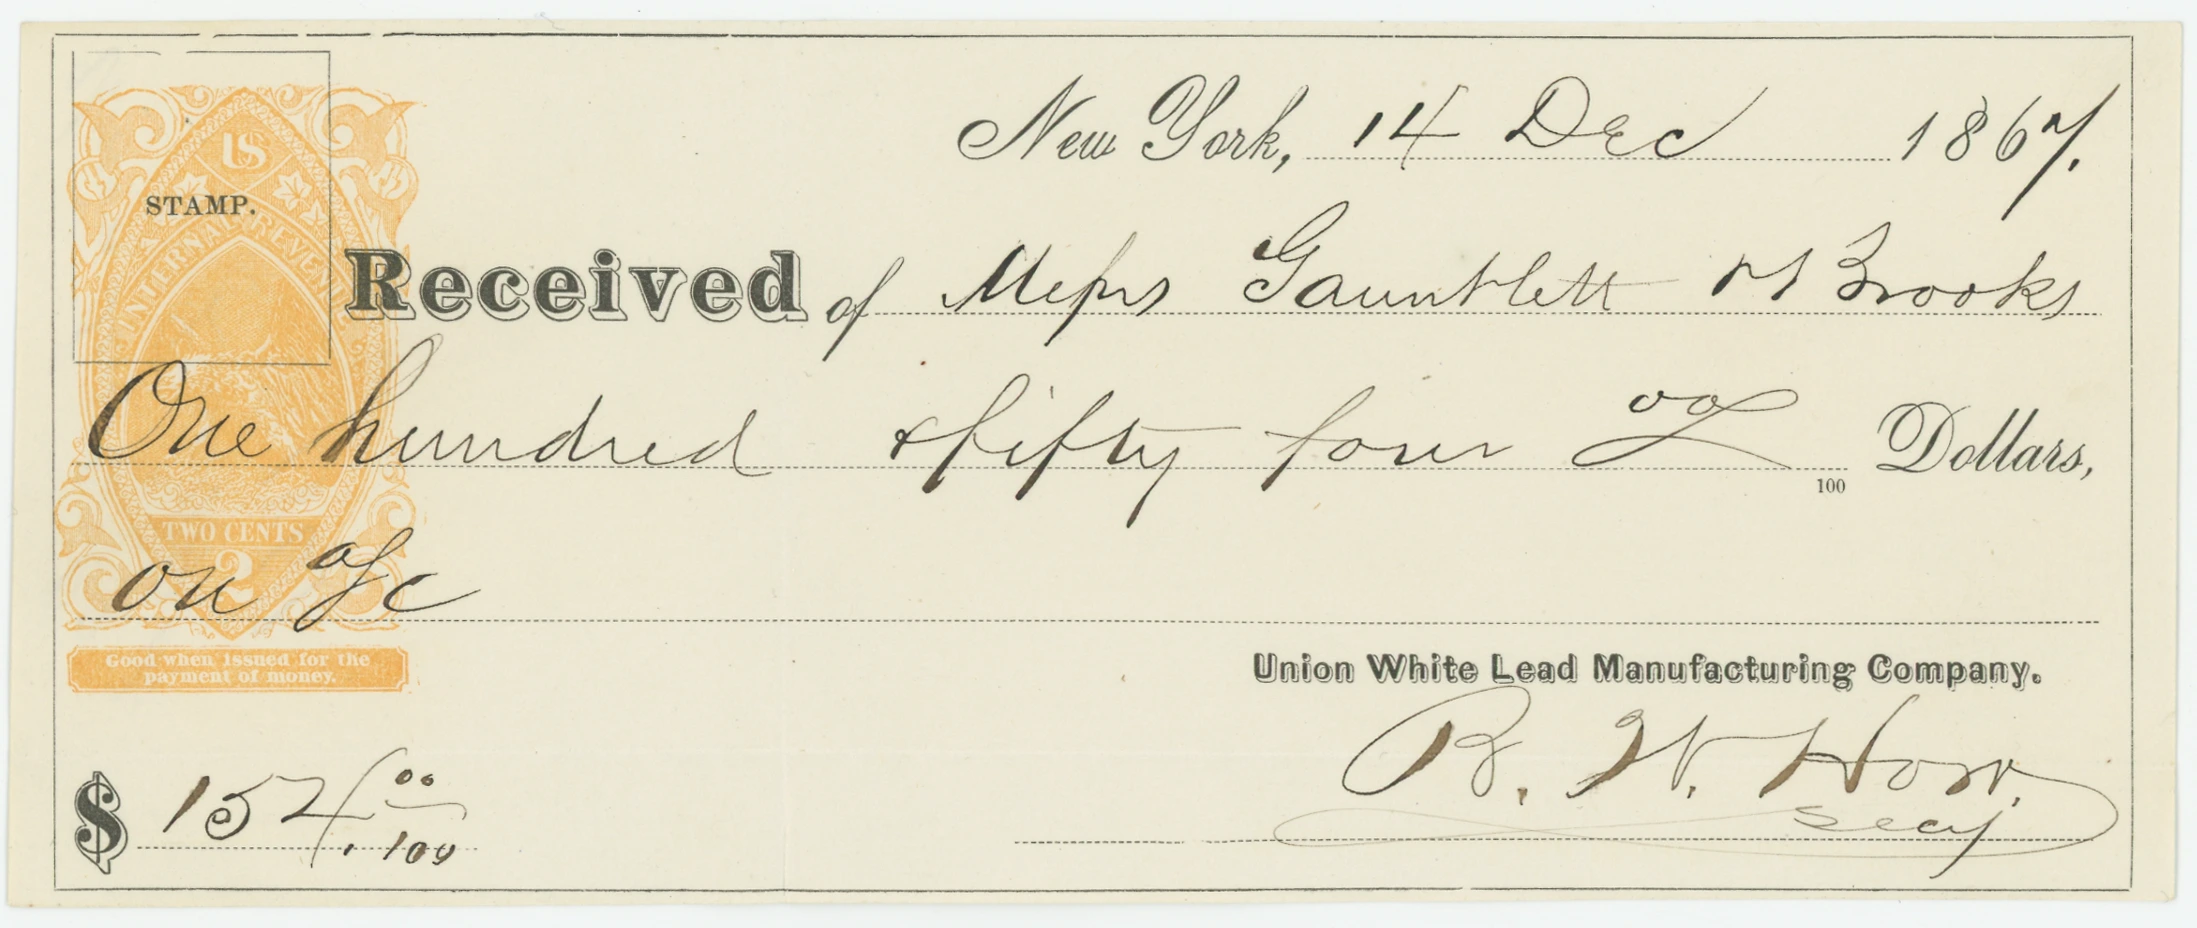 New York, 14 Dec 1867.
US
STAMP.
INTERNAL REVEN
Received of Messrs Gauntlett & Brooks
One hundred & fifty four 00/100 Dollars,
TWO CENTS
2
on a/c
Good when issued for the
payment of money.
Union White Lead Manufacturing Company.
$ 154.00/100
R. W.
Secy